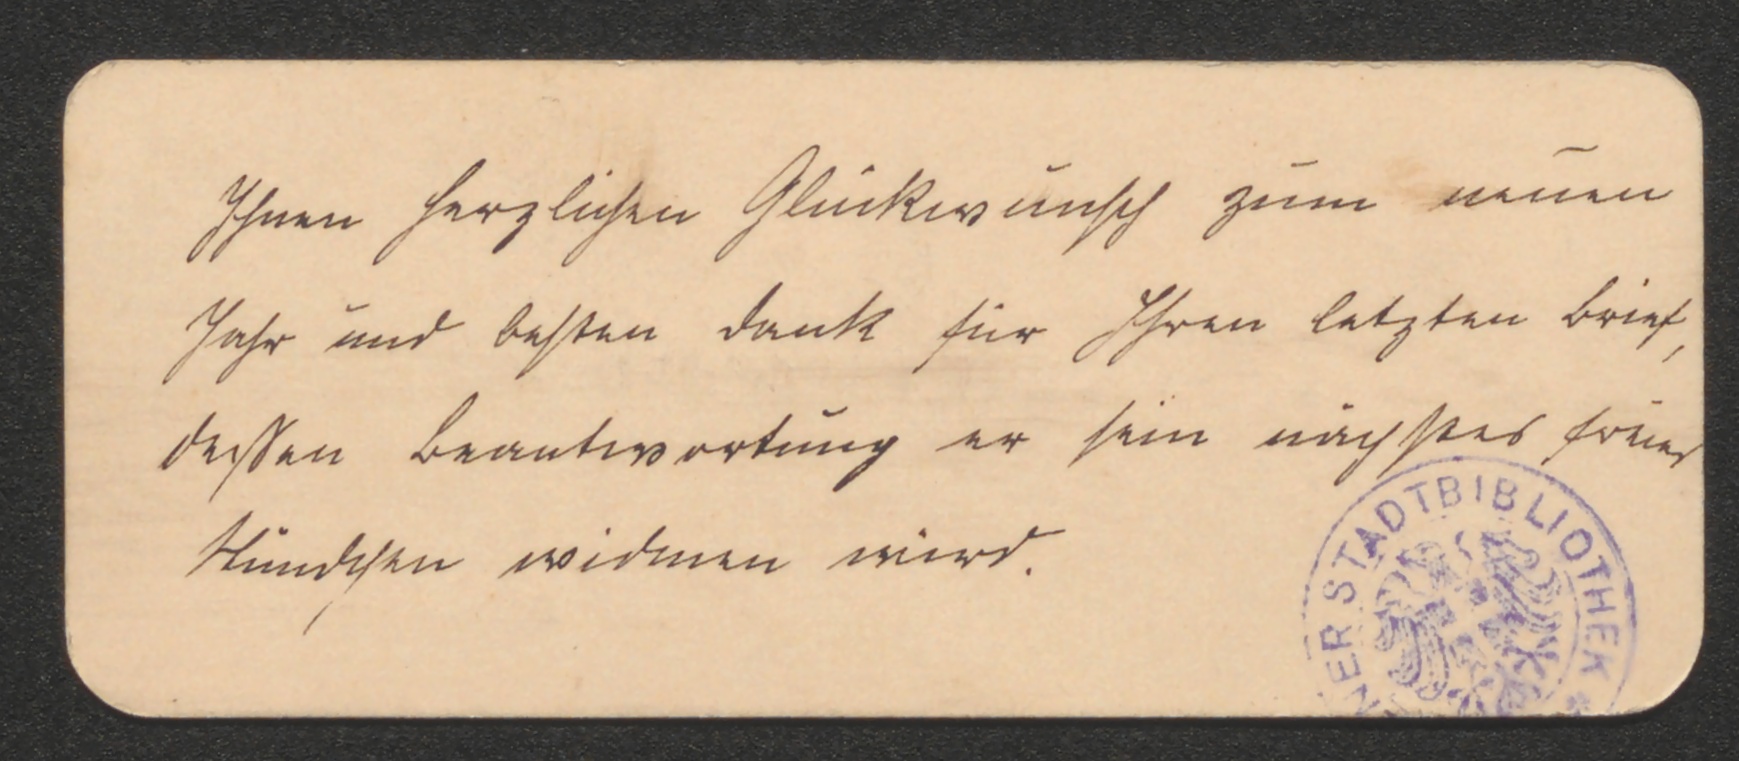 Ihnen herzlichen Glückwunsch zum neuen
Jahr und besten Dank für Ihren letzten Brief,
dessen Beantwortung er sein nächstes freies
Stündchen widmen wird.
NER STADTBIBLIOTHEK *